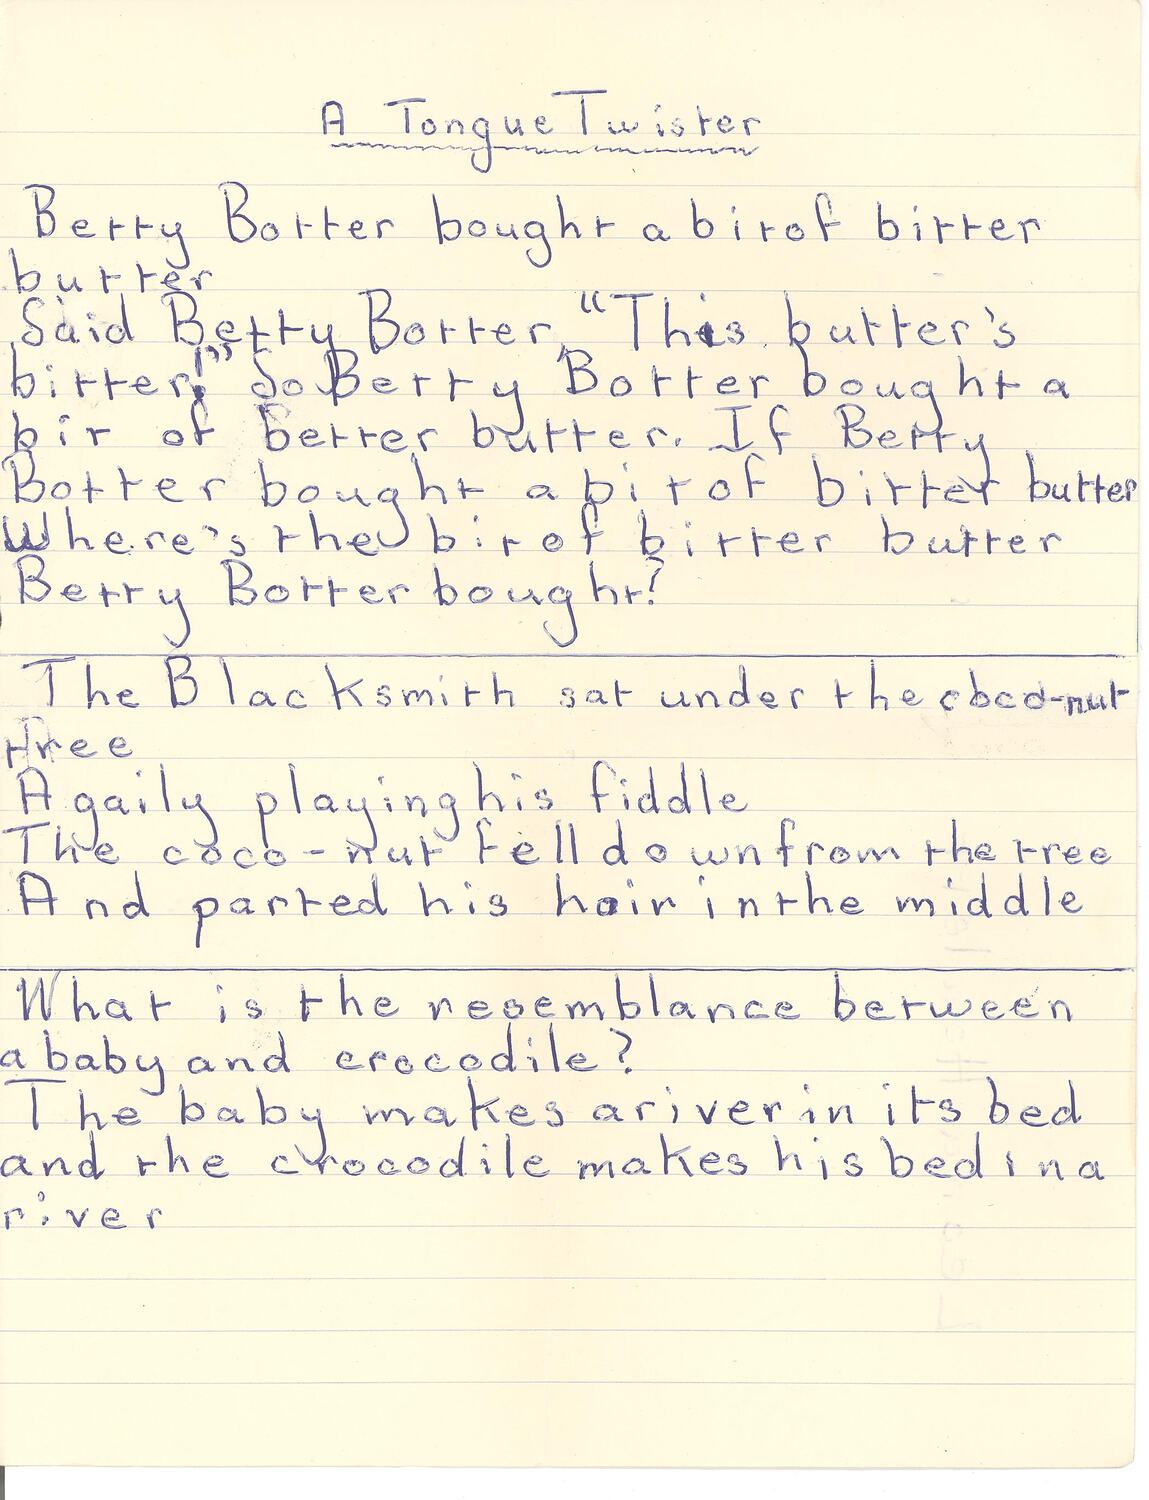 A Tongue Twister
Betty Botter bought a bit of bitter
butter
Said Betty Botter, "This butter's
bitter!" So Betty Botter bought a
bit of better butter. If Betty
Botter bought a bit of bitter butter
Where's the bit of bitter butter
Betty Botter bought?
The Blacksmith sat under the coco-nut
tree
A gaily playing his fiddle
The coco-nut fell down from the tree
And parted his hair in the middle
What is the resemblance between
a baby and crocodile?
The baby makes a river in its bed
and the crocodile makes his bed in a
river